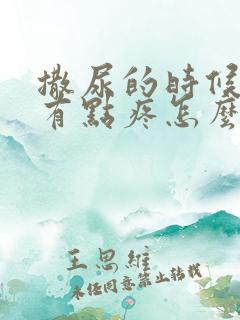 撒尿的時候
有點疼怎麼
王思維
未任同意禁止轉載